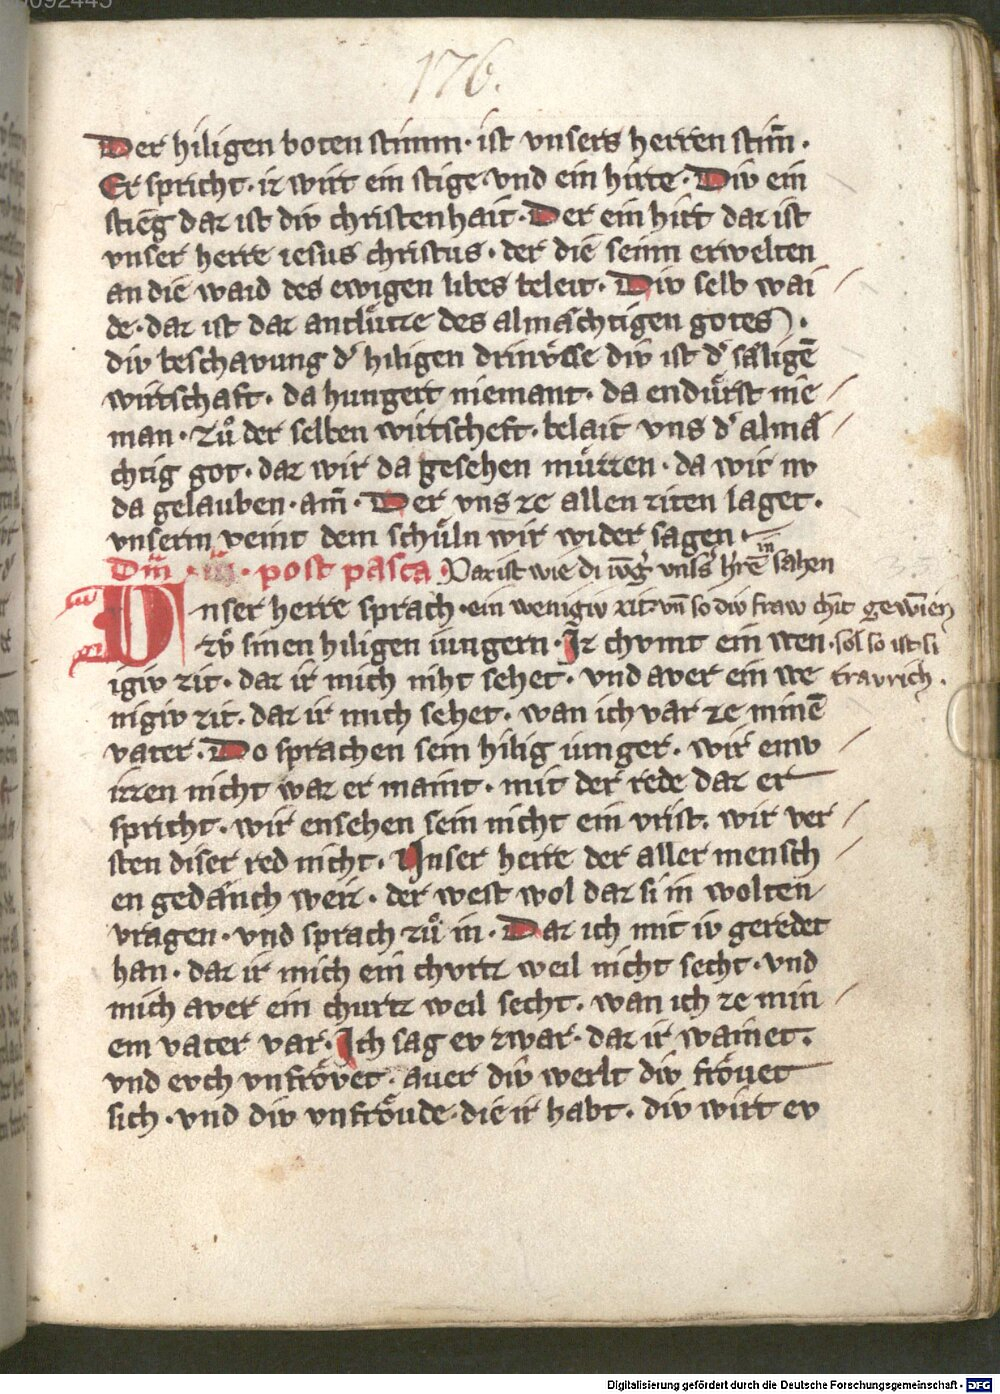 176.
Der hiligen boten stimm · ist vnsers herren stim̄ ·
Er spricht · ir wirt ein stige · vnd ein hirte · Div ein
stieg daz ist div christenhait · Der ein hirt daz ist
vnser herre iesus christus · der die seinn erwelten
an die waid des ewigen libes beleit · Div selb wai
de · daz ist daz antlu̍tze des alma̍chtigen gotes ·
div beschavung d' hiligen drinv̍sse div ist d' sa̍ligē
wirtschaft · da hungert niemant · da endu̍rst nie
man · zů der selben wirtscheft · belait vns d' alma̍
chtig got · daz wir da gesehen mu̍zzen · da wir nv
da gelauben · am̄ · Der vns ze allen ziten laget ·
vnserm veint dem schu̍ln wir wider sagen ·
Dm̄ · iij · post pasca · Daz ist wie di iv̄g' vns's h'rē in sahen
Unser herre sprach · ein wenigiv zit · vn̄ so div fraw chit gewīen
zů sinen hiligen iungern · Ir chvmt ein wen · sol so ist si
igiv zit · daz ir mich niht sehet · vnd aver ein we travrich ·
nigiv zit · daz ir mich sehet · wan ich var ze minē
vater · Do sprachen sein hilig iunger · wir enw
izzen nicht waz er maint · mit der rede daz er
spricht · wir ensehen sein nicht ein vrist · wir ver
sten diser red nicht · Unser herre der aller mensch
en geda̍nch weiz · der west wol daz si in wolten
vragen · vnd sprach zů in · Daz ich mit iv geredet
han · daz ir mich ein chvrtz weil nicht secht · vnd
mich aver ein churtz weil secht · wan ich ze min
em vater var · Ich sag ev zwar · daz ir wainet ·
vnd evch vnfro̍vet · auer div werlt div fro̍uet
sich · vnd div vnfro̍ude · die ir habt · div wirt ev
Digitalisierung gefördert durch die Deutsche Forschungsgemeinschaft - DFG